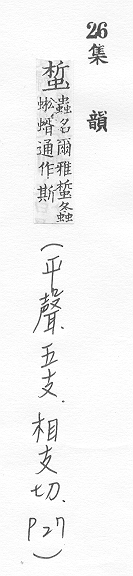 26 集韻
蜤
蟲名爾雅蜤螽
蜙蝑通作斯
(平聲.五支.相支切.P27)